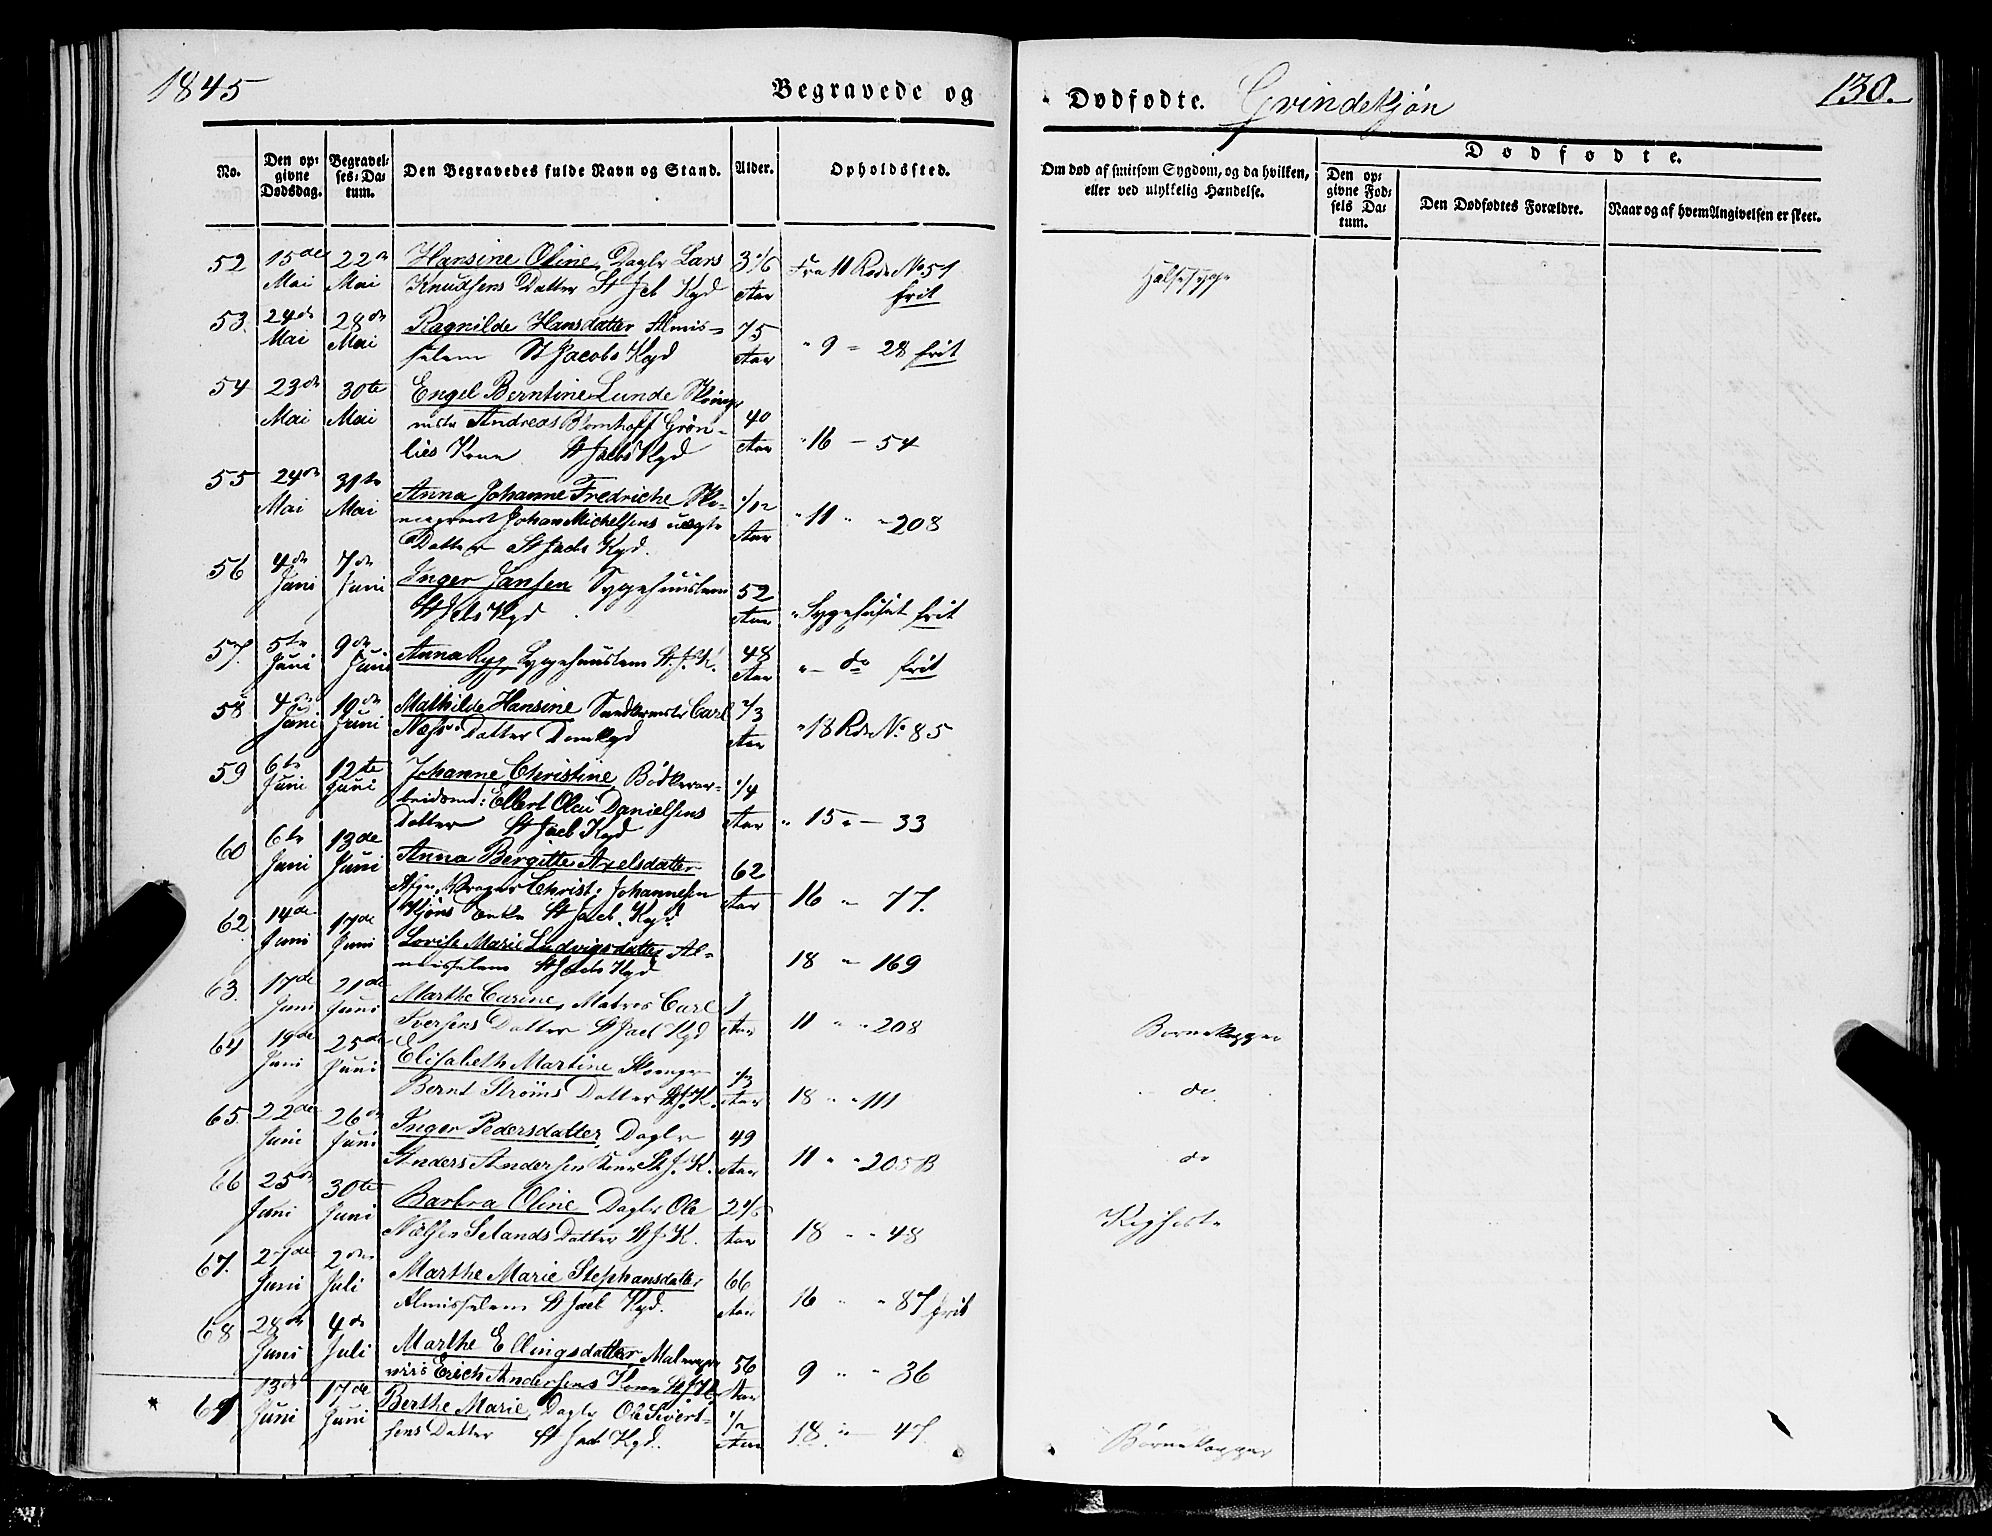 1845
Begravede og
Dødfødte. Qvindekjøn
130.
No.
Den op-
givne
Dødsdag.
Begravel-
ses-Da-
tum.
Den Begravedes fulde Navn og Stand.
Alder.
Opholdssted.
Om død af smitsom Sygdom, og da hvilken,
eller ved ulykkelig Hændelse.
Dødfødte.
Den op-
givne Fød-
sels Da-
tum.
Den Dødfødtes Forældre.
Naar og af hvem Angivelsen er skeet.
52 15de 22de Hansine Oline, Dagle Lars Fra 11 Rode No 51
Mai Mai Knudsens Datter St Jcb Kgd Aar frit
Halsesyge
53. 24de 28de Ragnilde Hansdatter Almis- 75
Mai Mai selem St Jacobs Kgd Aar " 9 " 28 frit
54 23de 30te Engel Berntine Lunde
Mai Mai Andreas Blomhoff Grøn- 40
lies Kone St Jacbs Kgd Aar " 16 — 54
55 24de 31te Anna Johanne Fredriche 1/12
Mai Mai Johan Michelsens uægte Aar " 11 " " 208
Datter St Jacbs Kgd.
56 4de 7de Inger Jansen Sygehuuslem 52
Juni Juni St Jcbs Kgd Aar " Sygehuset frit
57. 5te 9de Anna Ryg, Sygehuuslem St. J. K. 48
Juni Juni Aar " — do frit
58 4de 10de Mathilde Hansine Carl 2/3
Juni Juni Næss Datter Domkgd Aar " 18 Rde No. 85
59 6te 12te Johanne Christine, Bødkerar- 1/4
Juni Juni beidsmd: Ellert Olai Danielsens
Datter St Jacb Kgd Aar " 15 " — 33
60 6te 13de Anna Bergitte Axelsdatter 62
Juni Juni Afgn. Christ: Johannesen Aar 16 " 77.
Enke St Jacb. Kgd.
62 14de 17de Lovise Marie Ludvigsdatter Al-
Juni Juni misselem St Jacbs Kgd 18 " 169
63. 17de 21de Marthe Carine, Matros Carl 1
Juni Juni Iversens Datter St Jacb Kgd Aar 11 " " 208
Børnekopper
64 19de 25de Elisabeth Martine 1/3
Juni Juni Bernt Strøms Datter St. J. K. Aar 18 " " 111
do.
65. 22de 26de Inger Pedersdatter, Dagle 49
Juni Juni Anders Andersen Kone St. J. K. Aar 11 " " 205 B
do
66 25de 30te Barbra Oline Dagle Ole
Juni Juni Selands Datter St J. K. Aar 18 " " 48
Kighoste
67. 27de 2den Marthe Marie Stephansdatter 66
Juni Juli Almisselem St Jacb Kgd. Aar 16 " " 87 frit
68 28de 4de Marthe Ellingsdatter, 56
Juni Juli Erich Andersens Kone Aar 9 " " 36
69 13de 17de Berthe Marie, Dagle Ole Sivert- 1/2
Juni Juni sens Datter St Jacb Kgd. Aar 18 " — 47
Børnekopper